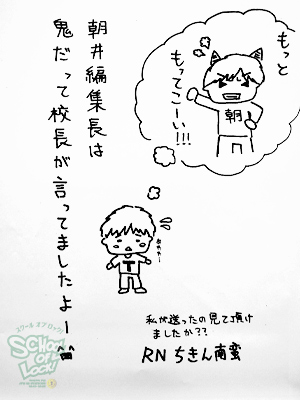 朝井編集長は
鬼だって校長が言ってましたよー
もっと
もってこーい!!!
朝
T
私が送ったの見て頂け
ましたか??
RN ちきん南蛮
スクール オブ ロック!
SCHOOL
OF
LOCK!